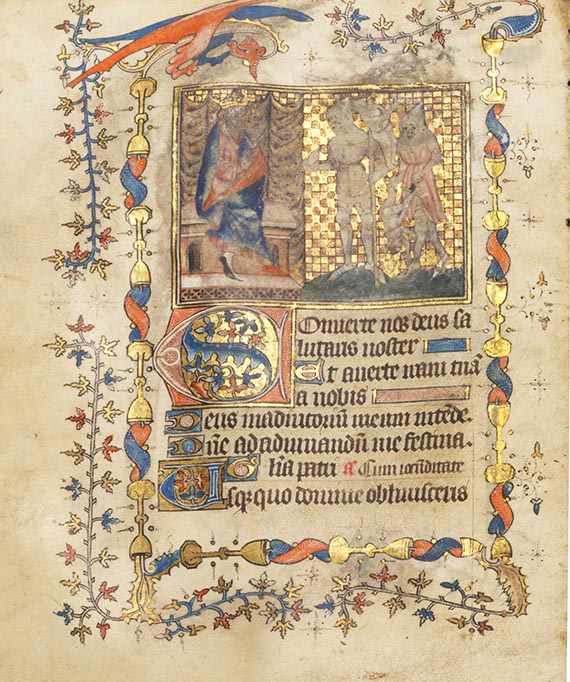 Onuerte nos deus sa
lutaris noster
Et auerte iram tuā
a nobis
Deus in adiutoriū meum intēde
Dn̄e ad adiuuandū me festina
Gl'ia patri añ Cum iocunditate
Usq̄quo domine obliuisceris